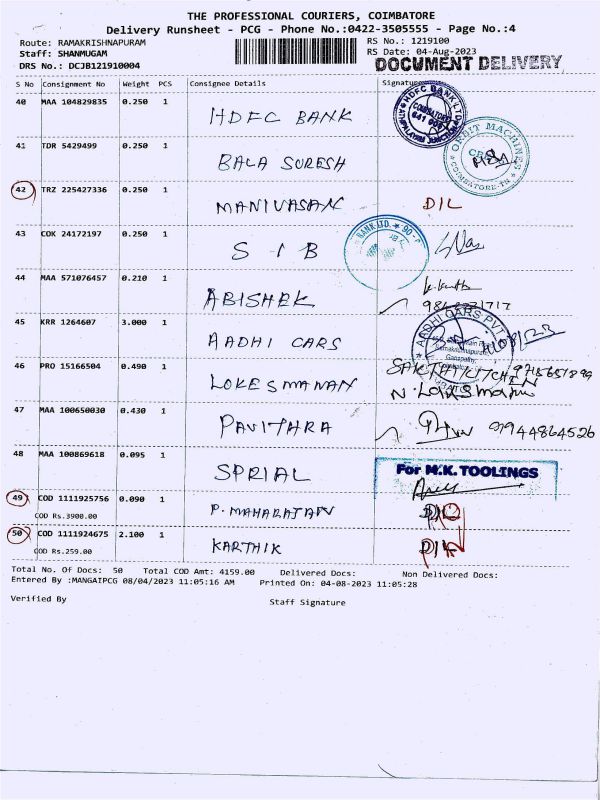 THE PROFESSIONAL COURIERS, COIMBATORE
Delivery Runsheet - PCG - Phone No.:0422-3505555 - Page No.:4
Route: RAMAKRISHNAPURAM RS No.: 1219100
Staff: SHANMUGAM RS Date: 04-Aug-2023
DRS No.: DCJB121910004 DOCUMENT DELIVERY
S No Consignment No Weight PCS Consignee Details Signature
40 MAA 104829835 0.250 1 HDFC BANK
HDFC BANK LTD
COIMBATORE
641 006
41 TDR 5429499 0.250 1 BALA SURESH
ORBIT MACHINES
COIMBATORE-TN
42 TRZ 225427336 0.250 1 MANIVASAN D/L
43 COK 24172197 0.250 1 S I B
BANK LTD.
44 MAA 571076457 0.210 1 ABISHEK
45 KRR 1264607 3.000 1 AADHI CARS
AADHI CARS PVT
Ganapathy,
46 PRO 15166504 0.490 1 LOKESMANAN
SAKTHI KITCHEN
47 MAA 100650030 0.430 1 PAVITHRA 91944864526
48 MAA 100869618 0.095 1 SPRIAL
For M.K. TOOLINGS
49 COD 1111925756 0.090 1 P. MAHARAJAN D/L
COD Rs.3900.00
50 COD 1111924675 2.100 1 KARTHIK D/L
COD Rs.259.00
Total No. Of Docs: 50 Total COD Amt: 4159.00 Delivered Docs: Non Delivered Docs:
Entered By :MANGAIPCG 08/04/2023 11:05:16 AM Printed On: 04-08-2023 11:05:28
Verified By Staff Signature